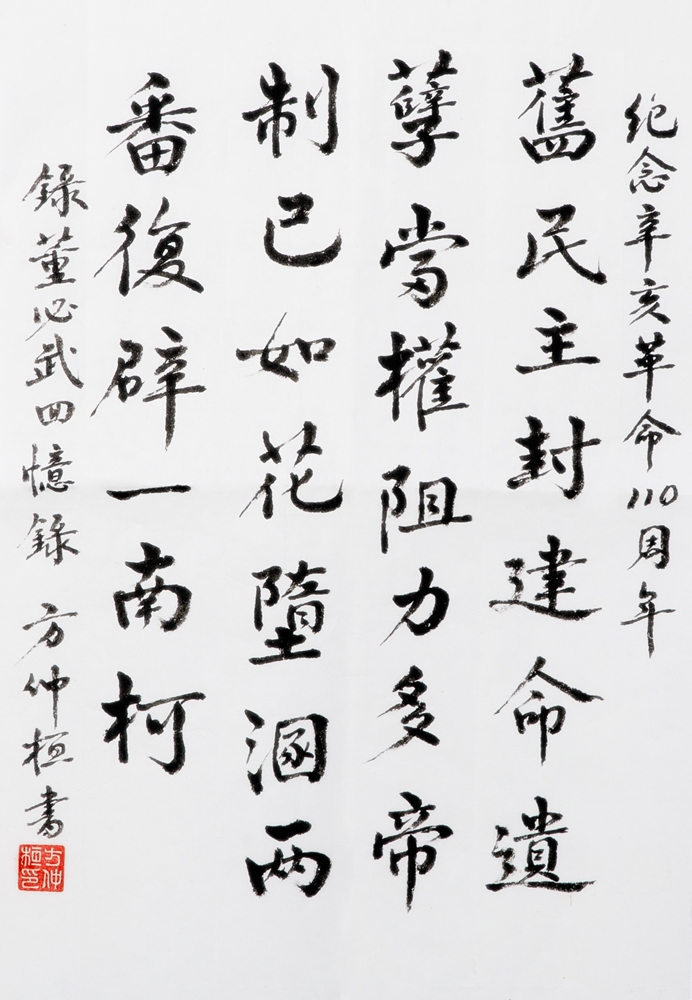 纪念辛亥革命110周年
舊民主封建命遺
孽當權阻力多帝
制已如花墮溷两
番復辟一南柯
錄董必武回憶錄 方仲桓書
方仲桓印